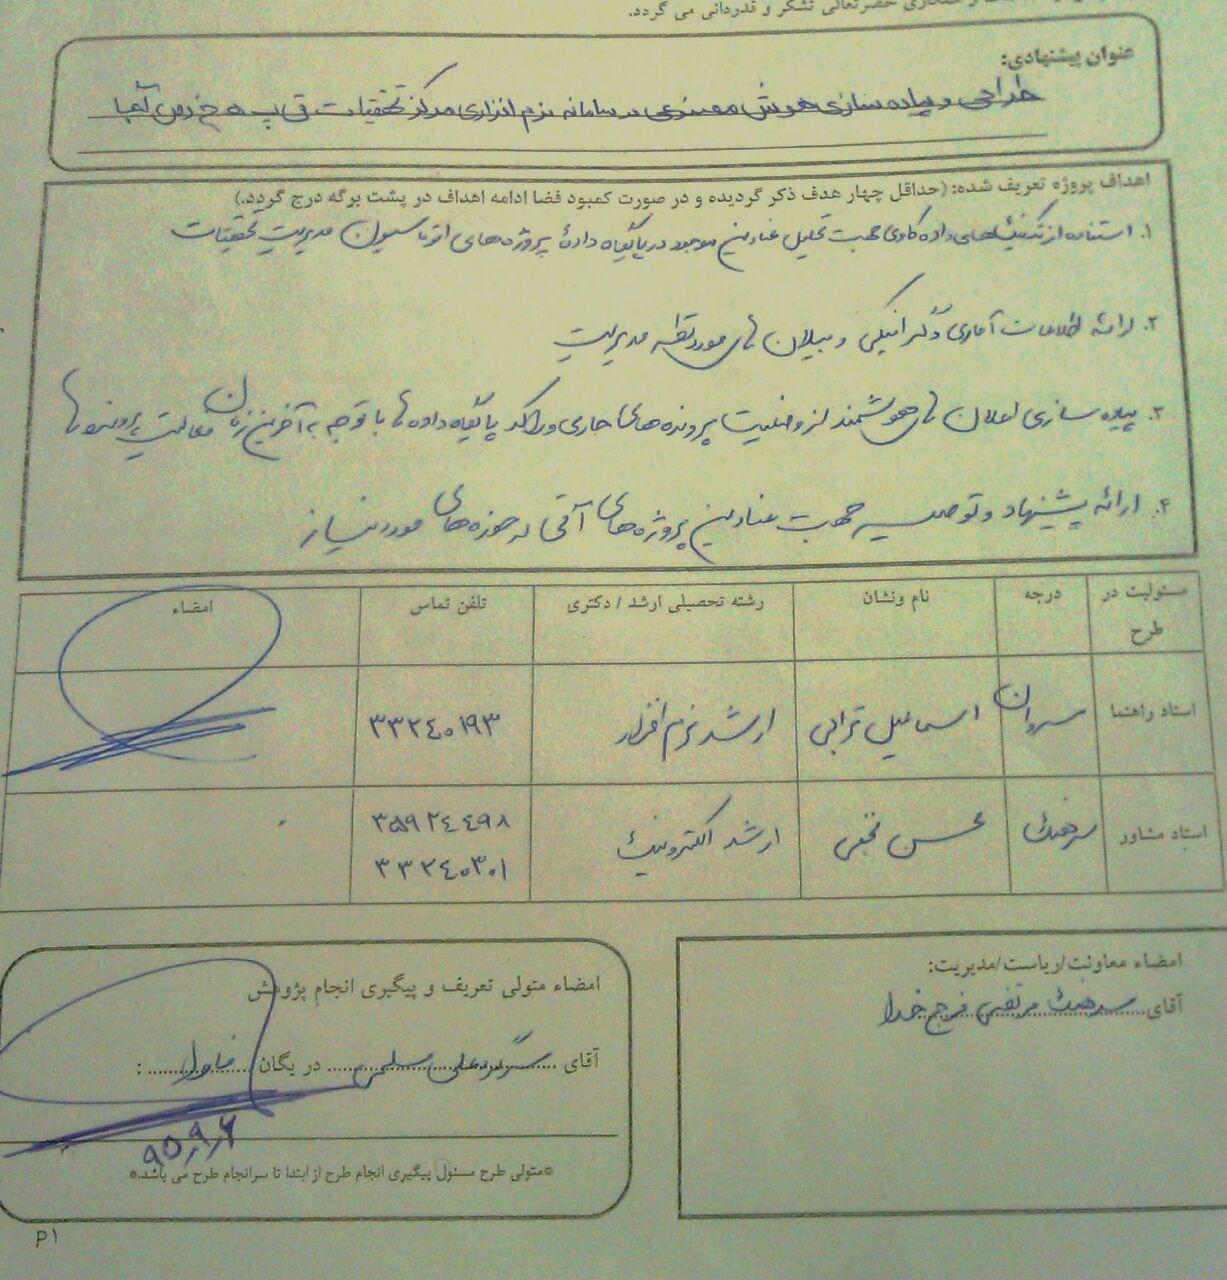 همکاری حضرتعالی تشکر و قدردانی می گردد.
عنوان پیشنهادی:
طراحی و پیاده سازی هوش مصنوعی در سامانه نرم افزاری مرکز تحقیقات
اهداف پروژه تعریف شده: (حداقل چهار هدف ذکر گردیده و در صورت کمبود فضا ادامه اهداف در پشت برگه درج گردد.)
۱. استفاده از تکنیک‌های داده کاوی جهت تحلیل عناوین موجود در پایگاه دادهٔ پروژه های اتوماسیون مدیریت تحقیقات
۲. ارائه اطلاعات آماری و گرافیکی و بیلان های مورد نظر مدیریت
۳. پیاده سازی اعلان های هوشمند از وضعیت پرونده های جاری و راکد پایگاه داده ها با توجه به آخرین زمان فعالیت پرونده ها
۴. ارائه پیشنهاد و توصیه جهت عناوین پروژه های آتی در حوزه های مورد نیاز
مسئولیت در طرح درجه نام ونشان رشته تحصیلی ارشد / دکتری تلفن تماس امضاء
استاد راهنما سروان اسماعیل ترابی ارشد نرم افزار ۳۳۲٤۰۱۹۳
استاد مشاور سرهنگ محسن نجفی ارشد الکترونیک ۳۵۹۲٤٤۹۸
۳۳۲٤۰۳۰۱
امضاء معاونت/ریاست/مدیریت:
آقای سرهنگ مرتضی فرج خدا
امضاء متولی تعریف و پیگیری انجام پژوهش
آقای سرگرد علی در یگان :
۹۵,۹,۶
*متولی طرح مسئول پیگیری انجام طرح از ابتدا تا سرانجام طرح می باشد.*
P۱